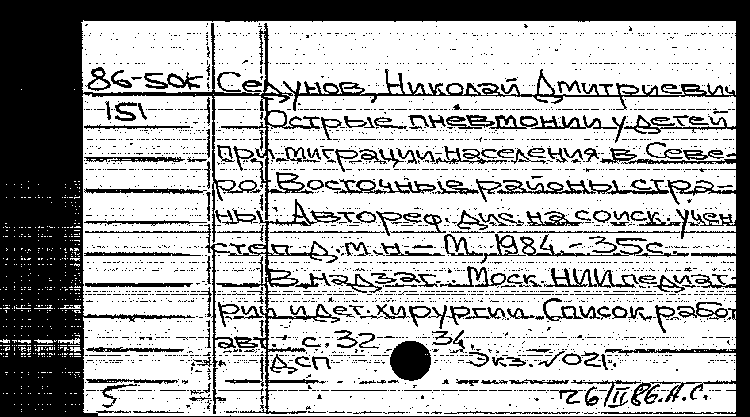 86-50к Седунов, Николай Дмитриевич
151 Острые пневмонии у детей
при миграции населения в Севе-
ро-Восточные районы стра-
ны : Автореф. дис. на соиск. учен.
степ. д. м. н. — М., 1984. - 35 с.
В надзаг. : Моск. НИИ педиат-
рии и дет. хирургии. Список работ
авт. : с. 32 - 34
ДСП Экз. √021.
5 26/II 86. Н.С.